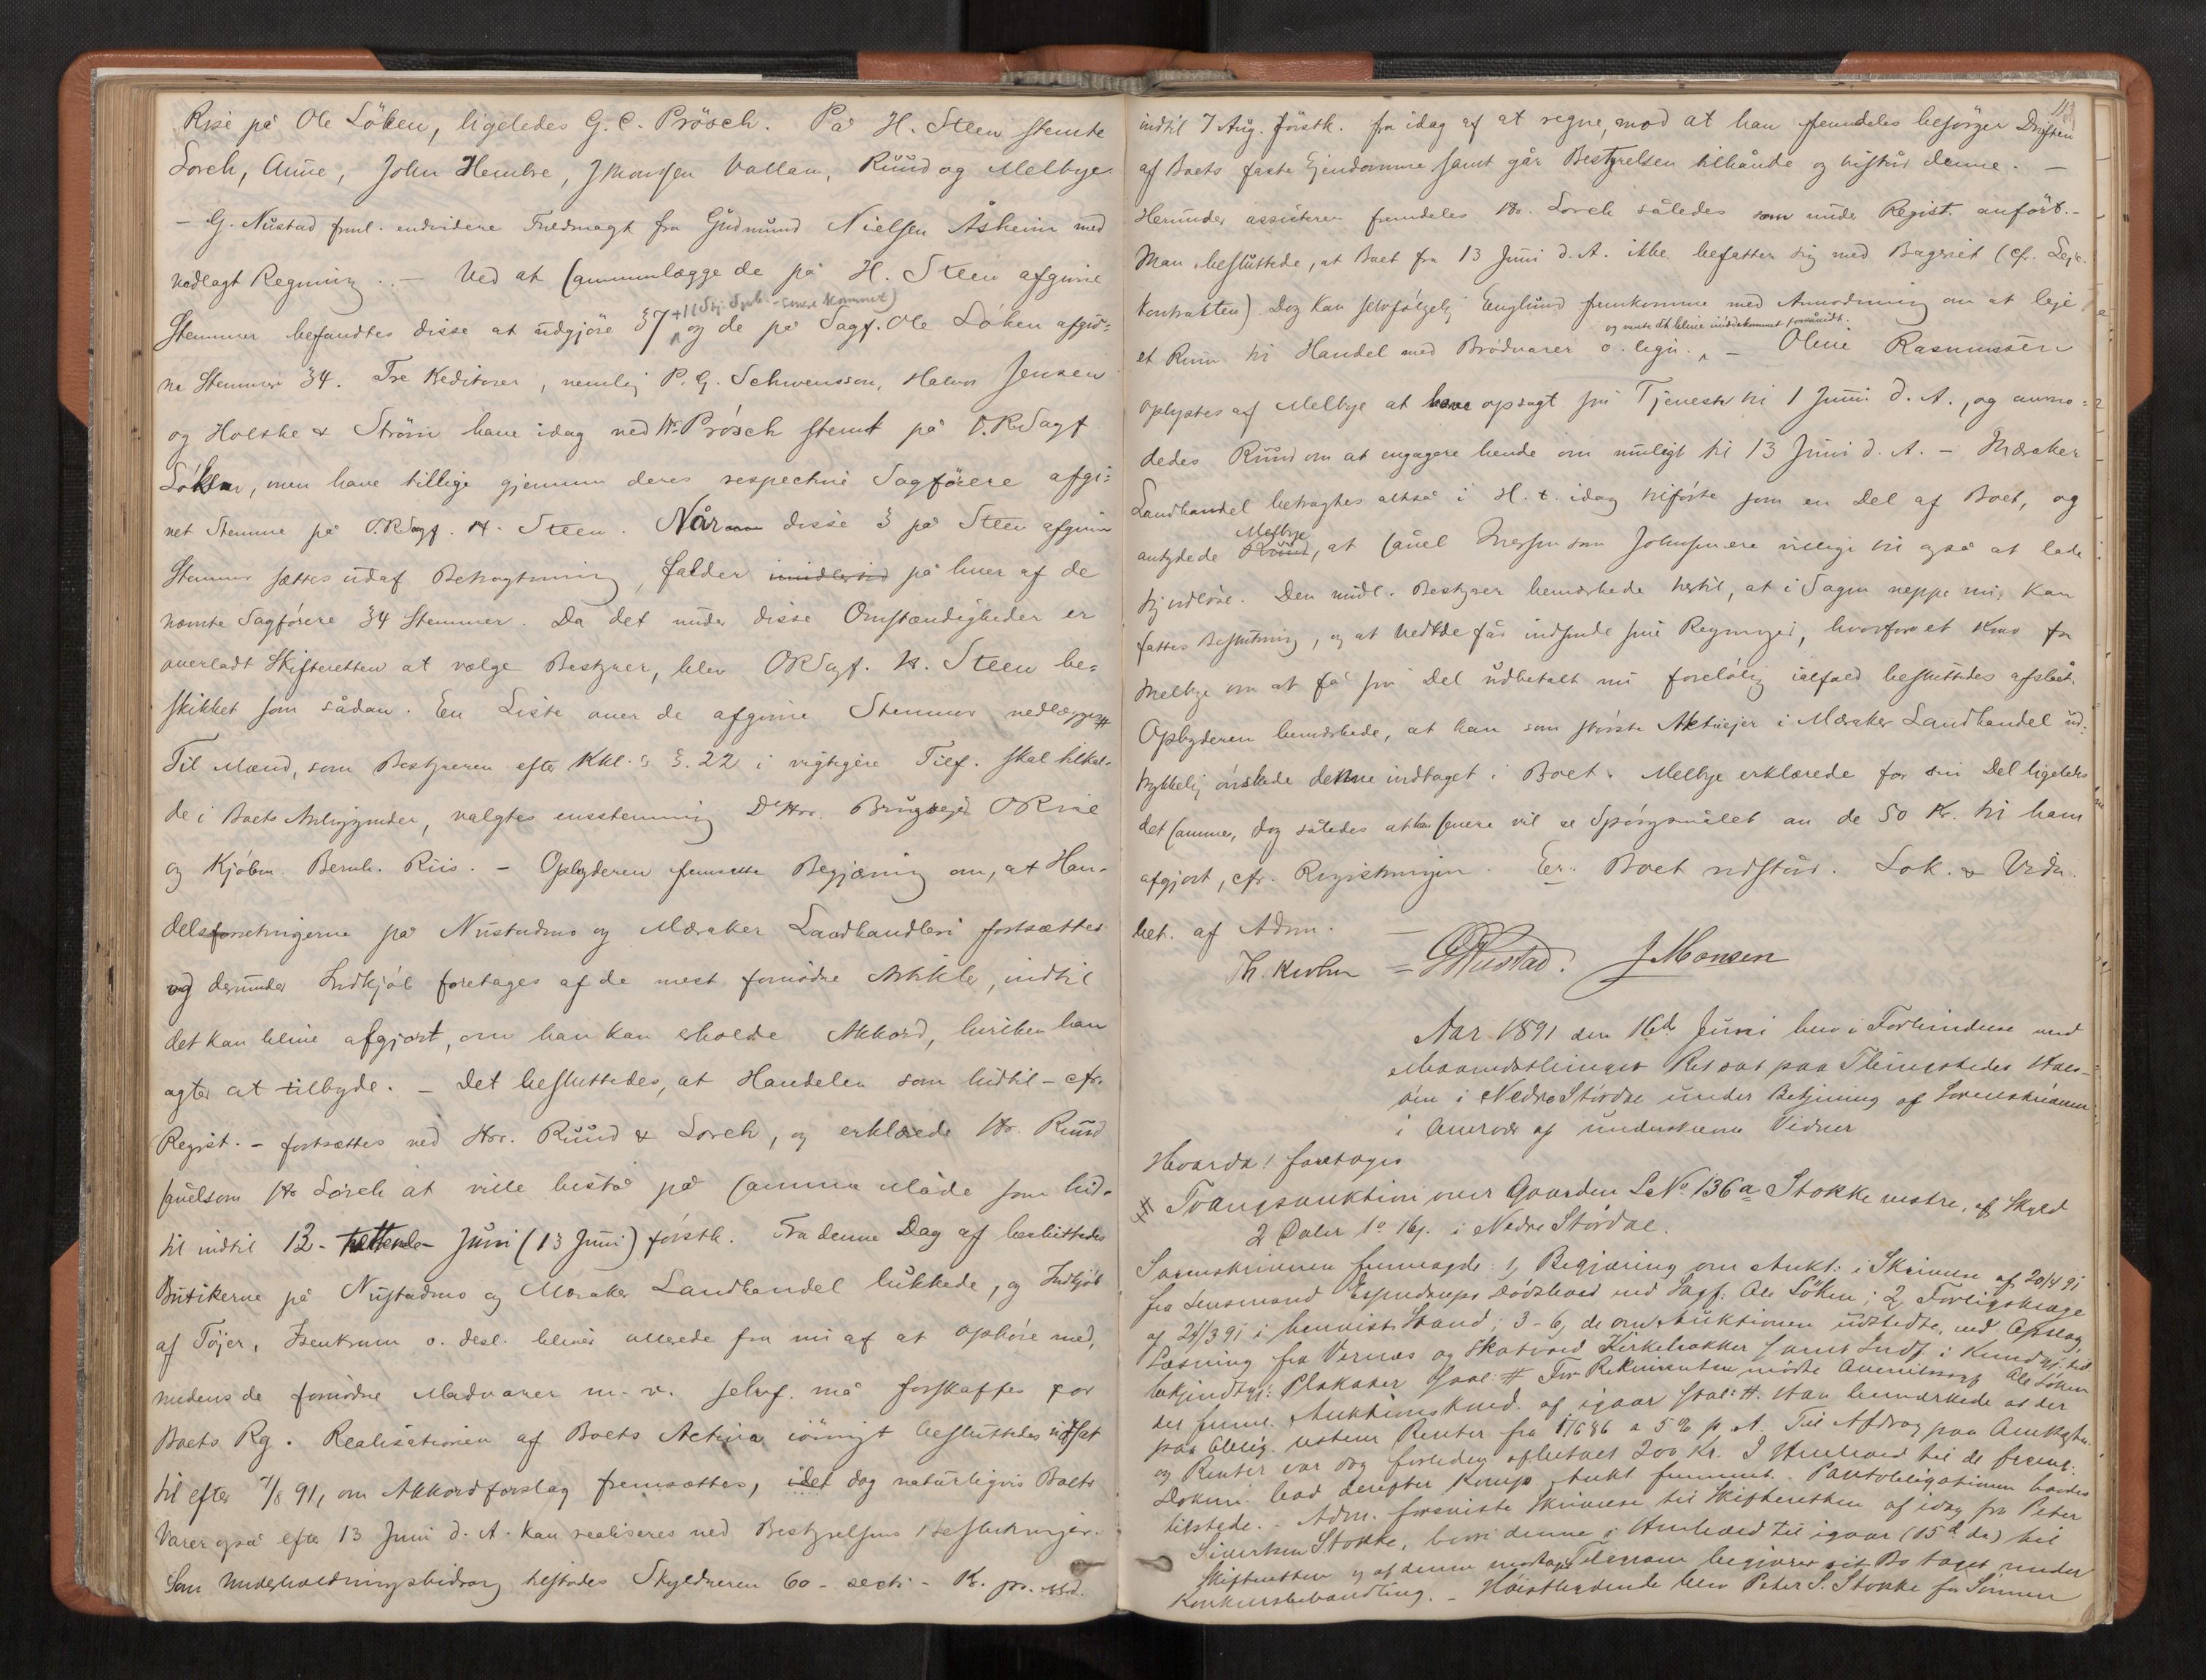 Rise på Ole Löken, ligeledes G. C. Prösch. På H. Steen stemte
Lorch, Aune, John Hembre, J Monsen Vollan, Ruud og Melbye
- G. Nustad freml. endvidere Fuldmagt fra Gudmund Nielsen Åsheim med
vedlagt Regning. - Ved at sammenlægge de på H. Steen afgivne
Stemmer befandtes disse at udgjöre 37 og de på Sagf. Ole Löken afgiv=
ne Stemmer 34. Tre Keditorer, nemlig P. G. Schwensson, Halvor Jensen
og Holthe & Ström have idag ved Hr. Prösch stemt på O.R.Sagf
Löken, men have tillige gjennem deres respective Sagförere afgi=
vet Stemme på O.RSagf. H. Steen. Når disse 3 på Steen afgivne
Stemmer sættes udaf Betragtning, falder imidlertid på hver af de
nævnte Sagförere 34 Stemmer. Da det under disse Omstændigheder er
overladt Skifteretten at vælge Bestyrer, blev ORSagf. H. Steen be=
skikket som sådan. En Liste over de afgivne Stemmer vedlægges #
Til Mænd, som Bestyreren efter Kkl.s §. 22 i vigtigere Tilf. skal tilkal-
de i Boets Anliggender, valgtes enstemmig DHrr. Brugseier O Rise
og Kjöbm. Bernh. Riis. - Opbyderen fremsatte Begjæring om, at Han-
delsforretningerne på Nustadmo og Meraker Landhandleri fortsættes
og derunder Indkjöb foretages af de mest fornödne Artikler, indtil
det kan blive afgjort, om han kan erholde Akkord, hvilken han
agter at tilbyde. - Det besluttedes, at Handelen som hidtil - cfr.
Regist. - fortsættes ved Hrr. Ruud & Lorch, og erklærede Hr. Ruud
såvelsom Hr Lorch at ville bistå på samme Måde som hid-
til indtil 13 - trettende - Juni (13 Juni) förstk. Fra denne Dag af besluttedes
Butikerne på Nustadmo og Meraker Landhandel lukkede, og Indkjöb
af Töjer, Isenkram o. desl. bliver allerede fra nu af at ophöre med,
medens de fornödne Madvarer m. v. selvf. må forskaffes for
Boets Rg. Realisationen af Boets Activa iövrigt besluttedes udsat
til efter 7/8 91, om Akkordforslag fremsættes, idet dog naturligvis Boets
Varer også efter 13 Juni d. A. kan realiseres ved Bestyrelsens Beslutninger.
Som Underholdningsbidrag tilstodes Skyldneren 60 - seeti - Kr. pr. Md.
indtil 7 Aug. förstk. fra idag af at regne, mod at han fremdeles besörger Driften
af Boets faste Ejendomme samt går Bestyrelsen tilhånde og bistår denne. -
Herunder assisterer fremdeles Hr. Lorch således som under Regist. anfört. -
Man besluttede, at Boet fra 13 Juni d. A. ikke befatter sig med Bageriet (cf. Leje-
kontrakten). Dog kan selvfölgelig Englund fremkomme med Anmodning om at leje
et Rum til Handel med Brödvarer o. lign. - Oline Rasmussen
oplystes af Melbye at have opsagt sin Tjeneste til 1 Juni d. A., og anmo=
dedes Ruud om at engagere hende om muligt til 13 Juni d. A. - Meraker
Landhandel betragtes altså i H. t. idag tilförte som en Del af Boet, og
antydede Melbye, at såvel som Johnsen ere villige til også at lade
sig udlöse. Den midl. Bestyrer bemærkede hertil, at i Sagen neppe nu kan
fattes Beslutning, og at Vedkde får indsende sine Regninger, hvorfor et Krav fra
Melbye om at få sin Del udbetalt nu forelöbig ialfald besluttedes afslået.
Opbyderen bemærkede, at han som störste Aktieejer i Meraker Landhandel ud=
trykkelig önskede denne indtaget i Boet. Melbye erklærede for sin Del ligeledes
det samme, dog således at han senere vil se Spörgsmålet om de 50 Kr. til ham
afgjort, cfr. Registreringen. Er. Boet udstår. Lok. & Vidn.
bet. af Adm. -
Th. Krohn = G Nustad. J Monsen
Aar 1891 den 16de Juni blev i Forbindelse med
Maanedsthinget Ret sat paa Thingstedet Hals-
öen i Nedre Stördal under Betjening af Sorenskriveren
i Overvær af underskrevne Vidner
Hvorda! foretoges
# Tvangsauktion over Gaarden LNo 136a Stokke vestre, af Skyld
2 Daler 1o 16s. i Nedre Stördal.
Sorenskriveren fremlagde: 1, Begjæring om Aukt: i Skrivelse af 20/4 91
fra Lensmand Dödsbo ved Sagf. Ole Löken; 2, Forligsklage
af 24/3 91 i henvist Stand; 3-6, de om Auktionen udstedte, ved Opslag,
Læsning fra Værnes og Skatvold Kirkebakker samt Indf. i Kundgj. tid.
bekjendtgj: Plakater saal: # For Rekvirenten mödte Overretssagf Ole Löken
der freml. Auktionskund. af igaar saal: #. Han bemærkede at der
paa Oblig. restere Renter fra 1/6 86 a 5 % p. A. Til Afdrag paa Omkostn.
og Renter var dog forleden afbetalt 200 Kr. I Henhold til de freml.
Dokum. bad derefter Komp Aukt fremmet. Pantobligationen havdes
tilstede. - Adm. foreviste Skrivelse til Skifteretten af idag fra Peter
Sivertsen Stokke, hvori denne i Henhold til igaar (15de ds) til
Skifteretten af denne modtaget Telegram begjærer sit Bo taget under
Konkursbehandling. - Höistbydende blev Peter S. Stokke for Sönnen